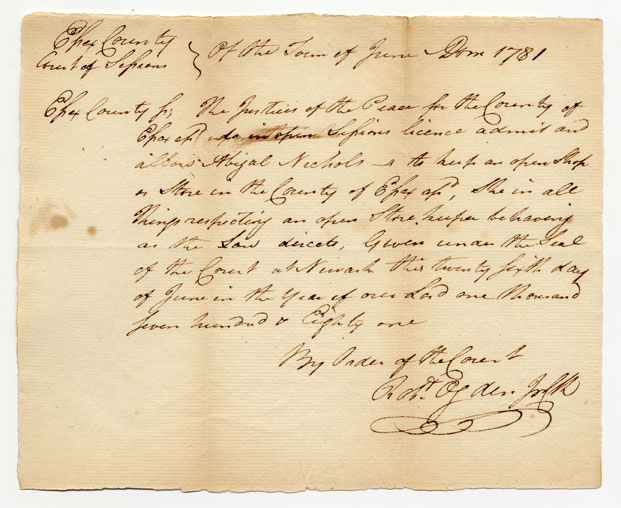 Essex County
Court of Sessions } Of the Term of June Dom 1781
Essex County ss The Justices of the Peace for the County of
Essex afd do in open Sessions licence admit and
allow Abigal Nichols to keep an open Shop
or Store in the County of Essex afd, She in all
things respecting an open Store keeper behaving
as the Law directs, Given under the Seal
of the Court at Newark this twenty sixth day
of June in the Year of our Lord one thousand
seven hundred & Eighty one
By Order of the Court
Robt. Ogden Jr Clk